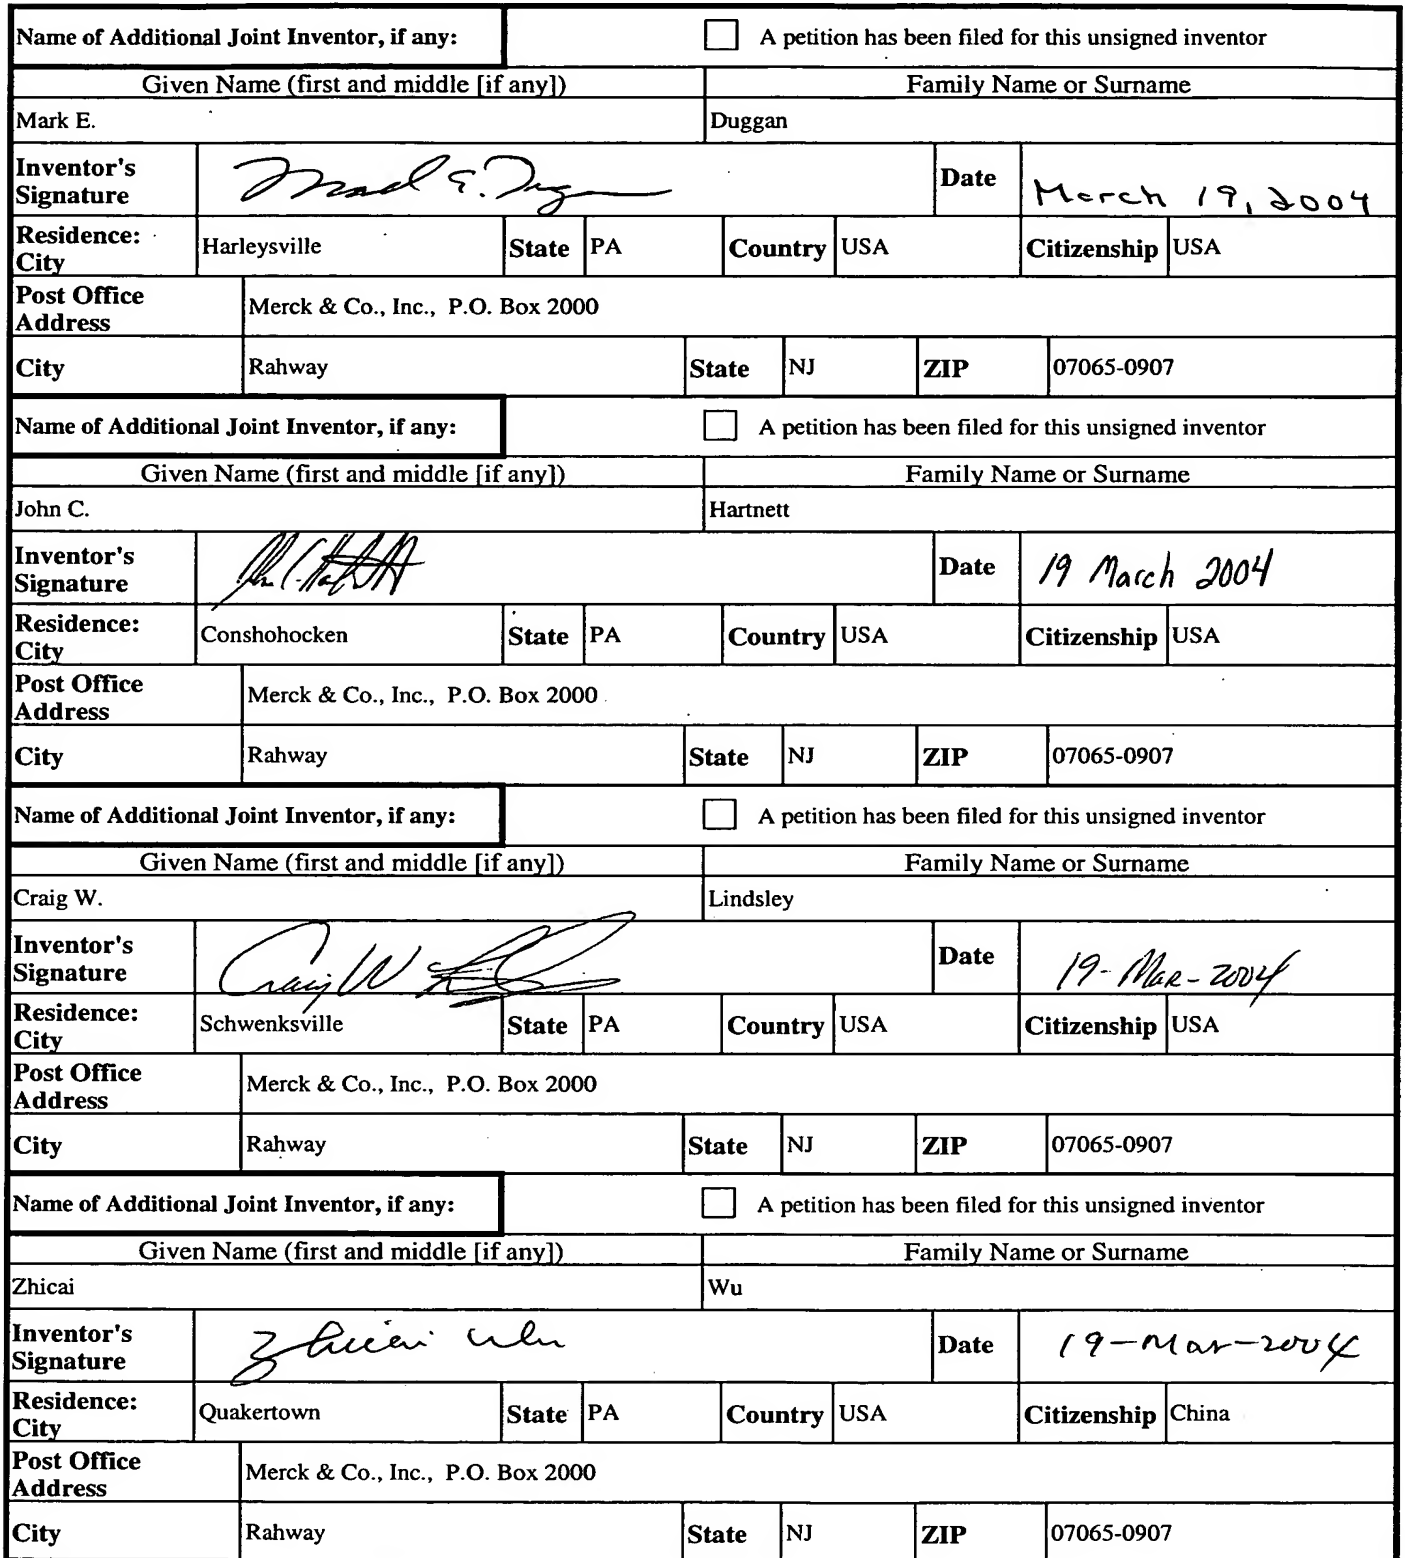 Name of Additional Joint Inventor, if any: A petition has been filed for this unsigned inventor
Given Name (first and middle [if any]) Family Name or Surname
Mark E. Duggan
Inventor's Signature Mark E. Duggan Date March 19, 2004
Residence: City Harleysville State PA Country USA Citizenship USA
Post Office Address Merck & Co., Inc., P.O. Box 2000
City Rahway State NJ ZIP 07065-0907
Name of Additional Joint Inventor, if any: A petition has been filed for this unsigned inventor
Given Name (first and middle [if any]) Family Name or Surname
John C. Hartnett
Inventor's Signature John C. Hartnett Date 19 March 2004
Residence: City Conshohocken State PA Country USA Citizenship USA
Post Office Address Merck & Co., Inc., P.O. Box 2000
City Rahway State NJ ZIP 07065-0907
Name of Additional Joint Inventor, if any: A petition has been filed for this unsigned inventor
Given Name (first and middle [if any]) Family Name or Surname
Craig W. Lindsley
Inventor's Signature Craig W Date 19-Mar-2004
Residence: City Schwenksville State PA Country USA Citizenship USA
Post Office Address Merck & Co., Inc., P.O. Box 2000
City Rahway State NJ ZIP 07065-0907
Name of Additional Joint Inventor, if any: A petition has been filed for this unsigned inventor
Given Name (first and middle [if any]) Family Name or Surname
Zhicai Wu
Inventor's Signature Zhicai Wu Date 19-Mar-2004
Residence: City Quakertown State PA Country USA Citizenship China
Post Office Address Merck & Co., Inc., P.O. Box 2000
City Rahway State NJ ZIP 07065-0907